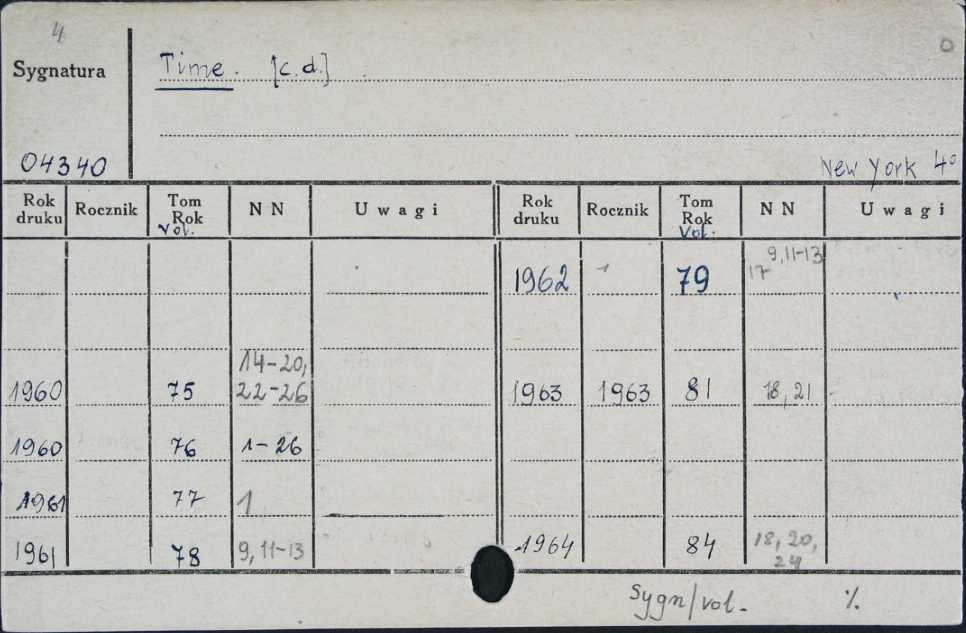 4
Sygnatura Time. [c.d.] 0
04340 New York 4°
Rok druku Rocznik Tom Rok Vol. N N Uwagi Rok druku Rocznik Tom Rok Vol. N N Uwagi
1962 79 9, 11-13 17
1960 75 14-20, 22-26 1963 1963 81 18, 21
1960 76 1-26
1961 77 1
1961 78 9, 11-13 1964 84 18, 20, 24
Sygn/vol. %